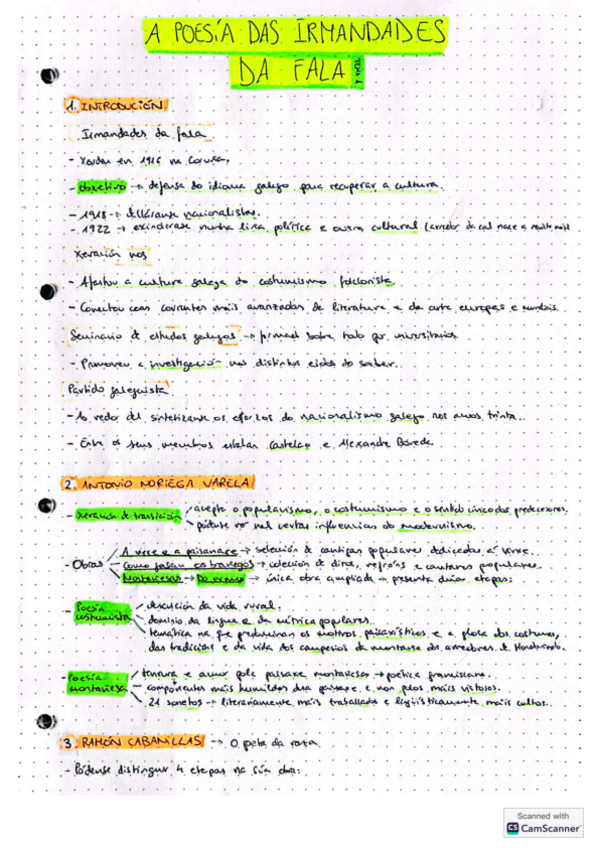 A POESÍA DAS IRMANDADES
DA FALA TEMA 1
1. INTRODUCIÓN
Irmandades da fala
- Xorden en 1916 na Coruña.
- Obxetivo → defensa do idioma galego para recuperar a cultura.
- 1918 → decláranse nacionalistas.
- 1922 → escíndense nunha liña política e outra cultural (arredor da cal nace a revista nós)
Xeración nós
- Afastou a cultura galega do costumismo folclorista.
- Conectou coas correntes máis avanzadas da literatura e da arte europeas e mundiais.
Seminario de estudos galegos → formado sobre todo por universitarios
- Promoveu a investigación nos distintos eidos do saber.
Partido galeguista
- Ao redor del sintetízanse os esforzos do nacionalismo galego nos anos trinta.
- Entre os seus membros estaban Castelao e Alexandre Bóveda.
2. ANTONIO NORIEGA VARELA
- Xeración de transición
acepta o popularismo, o costumismo e o sentido cívico dos predecesores.
pódese ver nel certas influencias do modernismo.
- Obras
A virxe e a paisanaxe → selección de cantigas populares dedicadas á virxe.
Como falan os brañegos → colección de ditos, refráns e cantares populares.
Montañesas → Do ermo → única obra ampliada → presenta dúas etapas:
- Poesía costumista
descrición da vida rural.
dominio da lingua e da métrica populares.
temática na que predominan os motivos paisaxísticos e a glosa dos costumes,
das tradicións e da vida dos campesiños da montaña dos arredores de Mondoñedo.
- Poesía montañesa
tenrura e amor pola paisaxe montañesa → poética franciscana.
compoñentes máis humildes da paisaxe e non polos máis vistosos.
21 sonetos → literariamente máis traballados e lingüísticamente máis cultos.
3. RAMÓN CABANILLAS → O poeta da raza
- Pódense distinguir 4 etapas na súa obra:
Scanned with
CS CamScanner